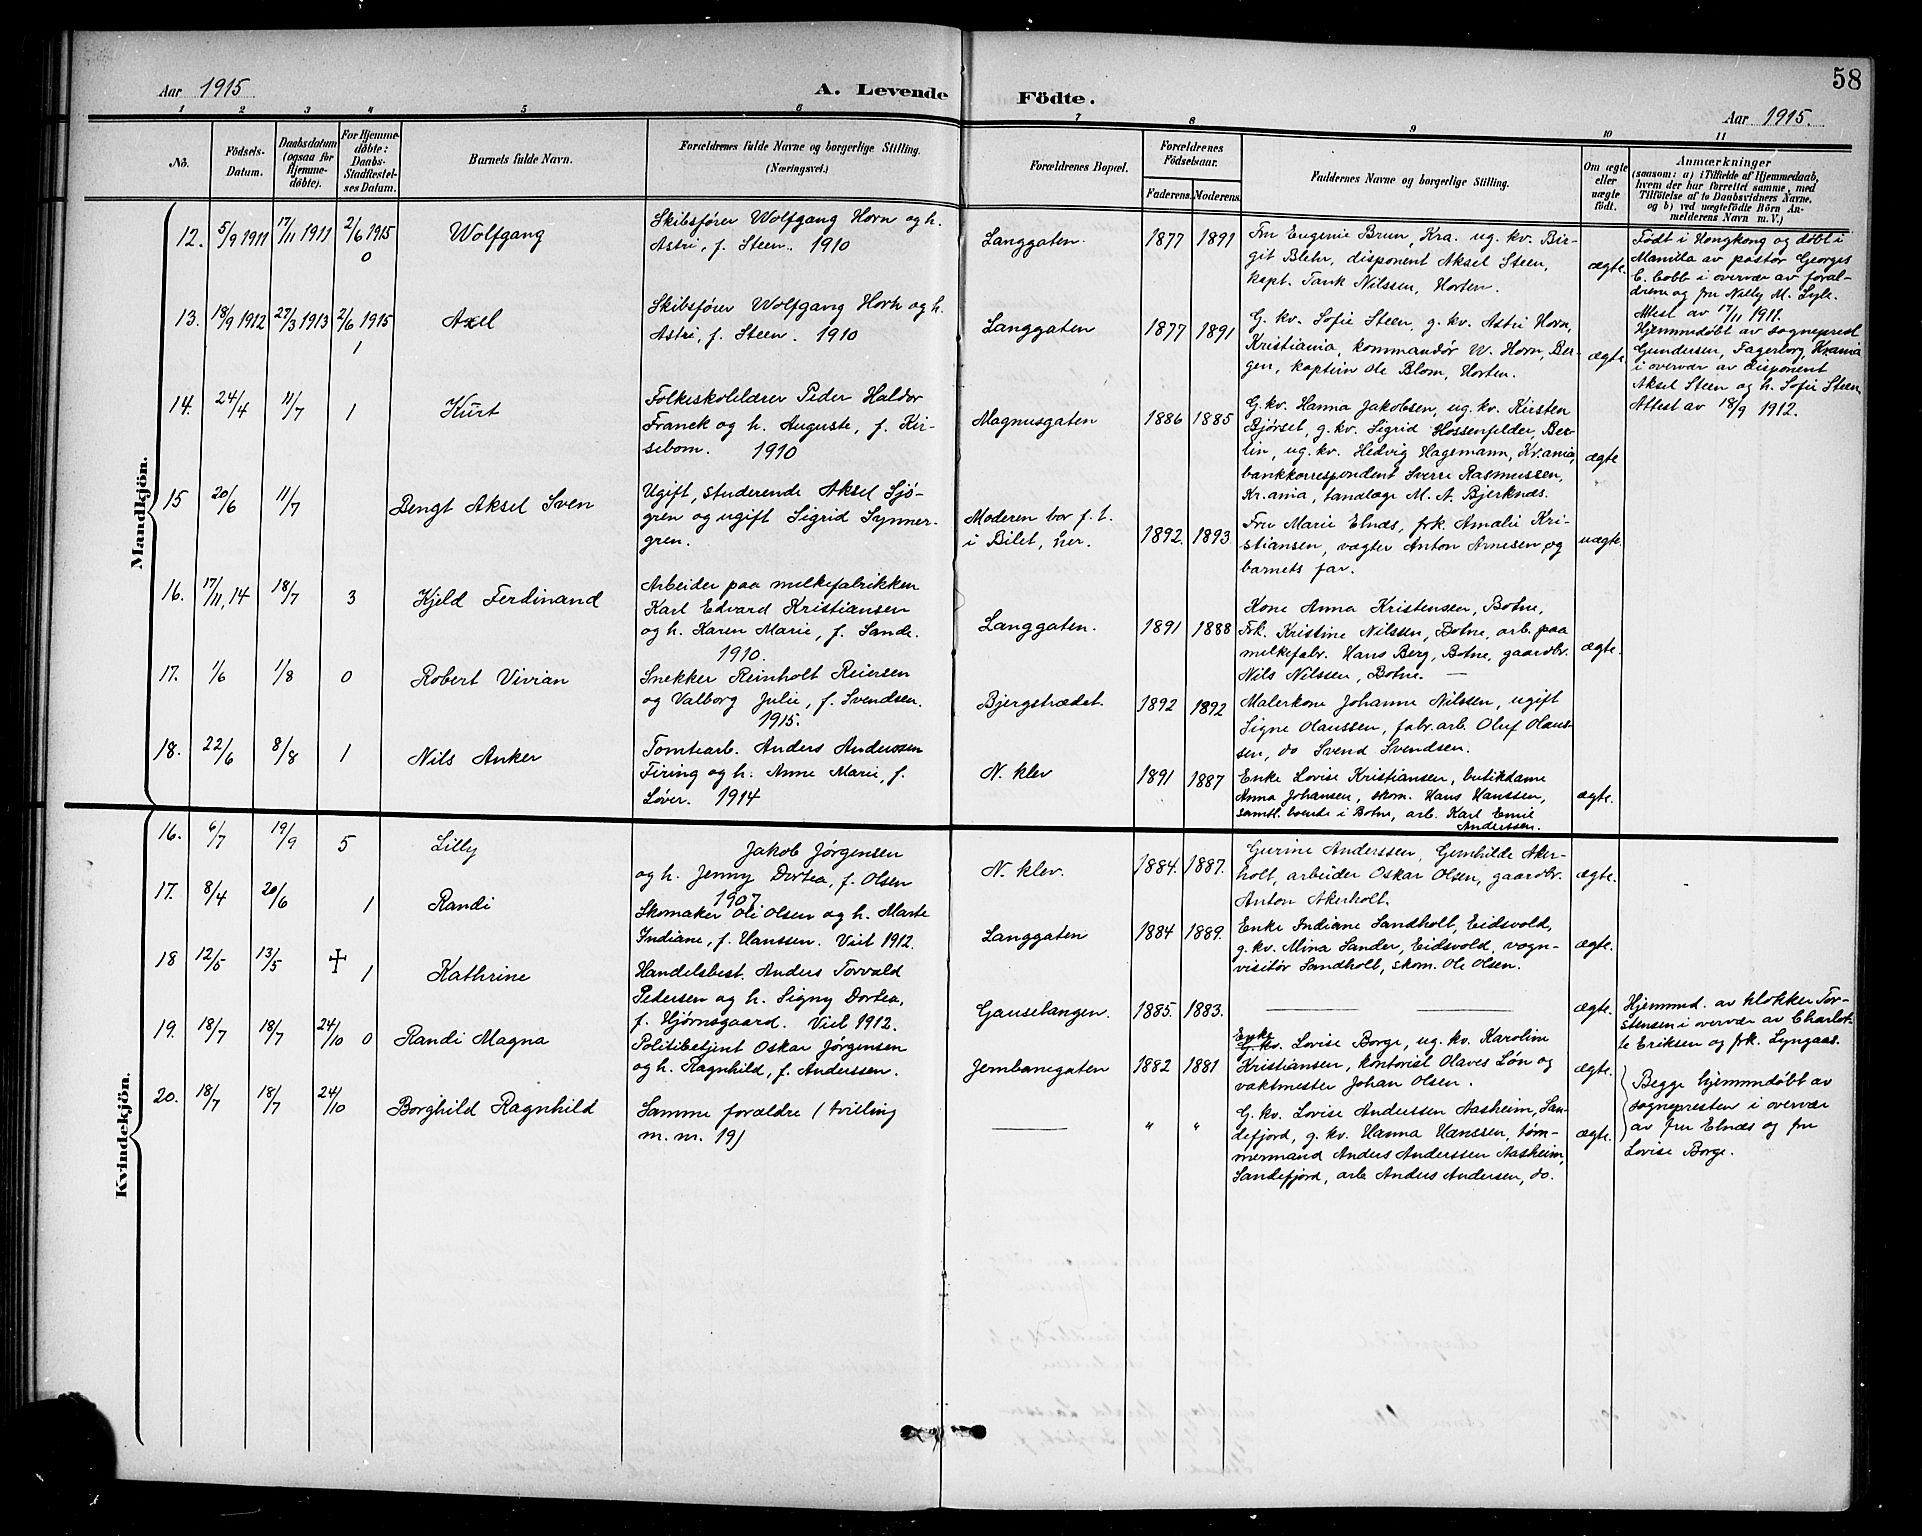 58
Aar 1915
A. Levende Födte.
Aar 1915.
1 2 3 4 5 6 7 8 9 10 11
No.
Födsels-
Datum.
Daabsdatum
(ogsaa for
Hjemme-
døbte).
For Hjemme-
döbte:
Daabs-
Stadfæstel-
ses Datum.
Barnets fulde Navn.
Forældrenes fulde Navne og borgerlige Stilling.
(Næringsvei.)
Forældrenes Bopæl.
Forældrenes
Födselsaar.
Faderens. Moderens.
Faddernes Navne og borgerlige Stilling.
Om ægte
eller
uægte
födt.
Anmærkninger
(saasom: a) i Tilfælde af Hjemmedaab,
hvem der har forrettet samme, med
Tilföielse af to Daabsvidners Navne.
og b) ved uægtefödte Börn An-
melderens Navn m. V.)
Mandkjön.
12. 5/9 1911 17/11 1911 2/6 1915
0
Wolfgang
Skibsfører Wolfgang Horn og h.
Astri, f. Steen. 1910
Langgaten.
1877 1891
Fru Eugenie Brun, Kra. ug. kv. Bir-
git Blehr, disponent Aksel Steen,
kapt. Tank Nilssen, Horten.
ægte.
Født i Hongkong og døbt i
Manilla av pastor Georges
C. Cobb i overvær av foræl-
drene og fru Nelly M. Lyle.
Attest av 17/11 1911.
13. 18/9 1912 27/3 1913 2/6 1915
1
Axel
Skibsfører Wolfgang Horn og h.
Astri, f. Steen. 1910
Langgaten
1877 1891
G. kv. Sofie Steen, g. kv. Astri Horn,
Kristiania, kommandør W. Horn, Ber-
gen, kaptein Ole Blom, Horten.
ægte.
Hjemmedøbt av sogneprest
Gundersen, Fagerborg, Krania
i overvær av disponent
Aksel Steen og h. Sofie Steen
Attest av 18/9 1912.
14. 24/4 11/7 1
Kurt
Folkeskolelærer Peder Haldor
Franck og h. Auguste, f. Kir-
sebom. 1910
Magnusgaten
1886 1885
G. kv. Hanna Jakobsen, ug. kv. Kirsten
Bjørset, g. kv. Sigrid Hossenfelder, Ber-
lin, ug. kv. Hedvig Hagemann, Kr.ania,
bankkorrespondent Sverre Rasmussen,
Kr.ania, tandlæge M. A. Bjerknæs.
ægte
15 20/6 11/7
Bengt Aksel Sven
Ugift, studerende Aksel Sjø-
gren og ugift Sigrid Synner-
gren.
Moderen bor f. t.
i Bilet, her.
1892. 1893.
Fru Marie Elnæs, frk. Amalie Kri-
stiansen, vægter Anton Arnesen og
barnets far.
uægte.
16. 17/11, 14 18/7 3
Kjeld Ferdinand
Arbeider paa melkefabrikken
Karl Edvard Kristiansen
og h. Karen Marie, f. Sande.
1910.
Langgaten.
1891 1888
Kone Anna Kristensen, Botne,
Frk. Kristine Nilssen, Botne, arb. paa
melkefabr. Hans Berg, Botne, gaardbr.
Nils Nilssen, Botne. —
ægte.
17. 1/6 1/8 0
Robert Vivian
Snekker Reinholt Reiersen
og Valborg Julie, f. Svendsen.
1915.
Bjergstrædet.
1892 1892
Malerkone Johanne Nilssen, ugift
Signe Olaussen, fabr. arb. Oluf Olaus-
sen, do Svend Svendsen.
18. 22/6 8/8 1
Nils Anker
Tomtearb. Anders Anderssen
Firing og h. Anne Marie, f.
Løver. 1914
N. klev
1891 1887
Enke Lovise Kristiansen, butikdame
Anna Johansen, skom. Hans Hanssen,
samtl. boende i Botne, arb. Karl Emil
Anderssen.
ægte.
Kvindekjön.
16. 6/7 19/9 5
Lilly
Jakob Jørgensen
og h. Jenny Dortea, f. Olsen
1907
N. klev.
1884. 1887.
Gurine Anderssen, Gunhilde Aker-
holt, arbeider Oskar Olsen, gaardbr.
Anton Akerholt.
ægte.
17. 8/4 20/6 1
Randi
Skomaker Ole Olsen og h. Marte
Indiane, f. Hanssen. Viet 1912.
Langgaten
1884 1889.
Enke Indiane Sandholt, Eidsvold,
g. kv. Mina Sander, Eidsvold, vogn-
visitør Sandholt, skom. Ole Olsen.
ægte.
18 12/5 13/5 ✝ 1
Kathrine
Handelsbest. Anders Torvald
Pedersen og h. Signy Dortea,
f. Hjørnsgaard. Viet 1912.
Gauselangen.
1885. 1883.
ægte.
Hjemmed. av klokker Tor-
stensen i overvær av Charlot-
te Eriksen og frk. Lyngaas.
19. 18/7 18/7 24/10 0
Randi Magna
Politibetjent Oskar Jørgensen
og h. Ragnhild, f. Anderssen.
Jernbanegaten
1882 1881
Enke
G. kv. Lovise Borge, ug. kv. Karoline
Kristiansen, kontorist Olaves Løn og
vaktmester Johan Olsen.
ægte.
Begge hjemmedøbt av
sognepresten i overvær
av fru Elnæs og fru
Lovise Borge.
20. 18/7 18/7 24/10
Borghild Ragnhild
Samme forældre (tvilling
m. nr. 19)
— " "
G. kv. Lovise Anderssen Aasheim, San-
defjord, g. kv. Hanna Hanssen, tøm-
mermand Anders Anderssen Aasheim,
Sandefjord, arb. Anders Andersen, do.
ægte.